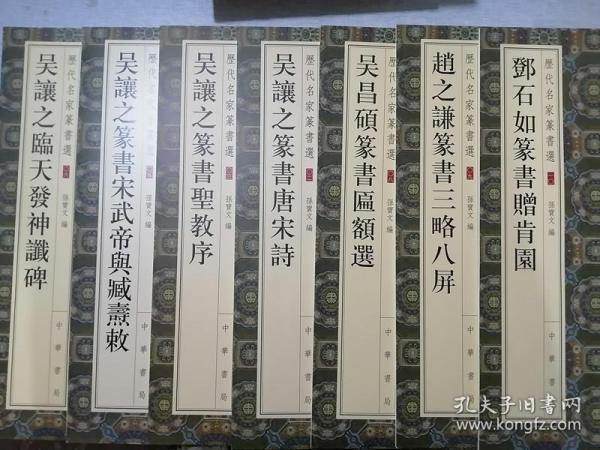 鄧石如篆書贈肯園
歷代名家篆書選
孫寶文 編
中華書局
趙之謙篆書三略八屏
歷代名家篆書選
孫寶文 編
中華書局
吴昌碩篆書匾額選
歷代名家篆書選
孫寶文 編
中華書局
吴讓之篆書唐宋詩
歷代名家篆書選
孫寶文 編
中華書局
吴讓之篆書聖教序
歷代名家篆書選
孫寶文 編
中華書局
吴讓之篆書宋武帝與臧燾敕
歷代名家篆書選
孫寶文 編
中華書局
吴讓之臨天發神讖碑
歷代名家篆書選
孫寶文 編
中華書局
孔夫子旧书网
www.kongfz.com